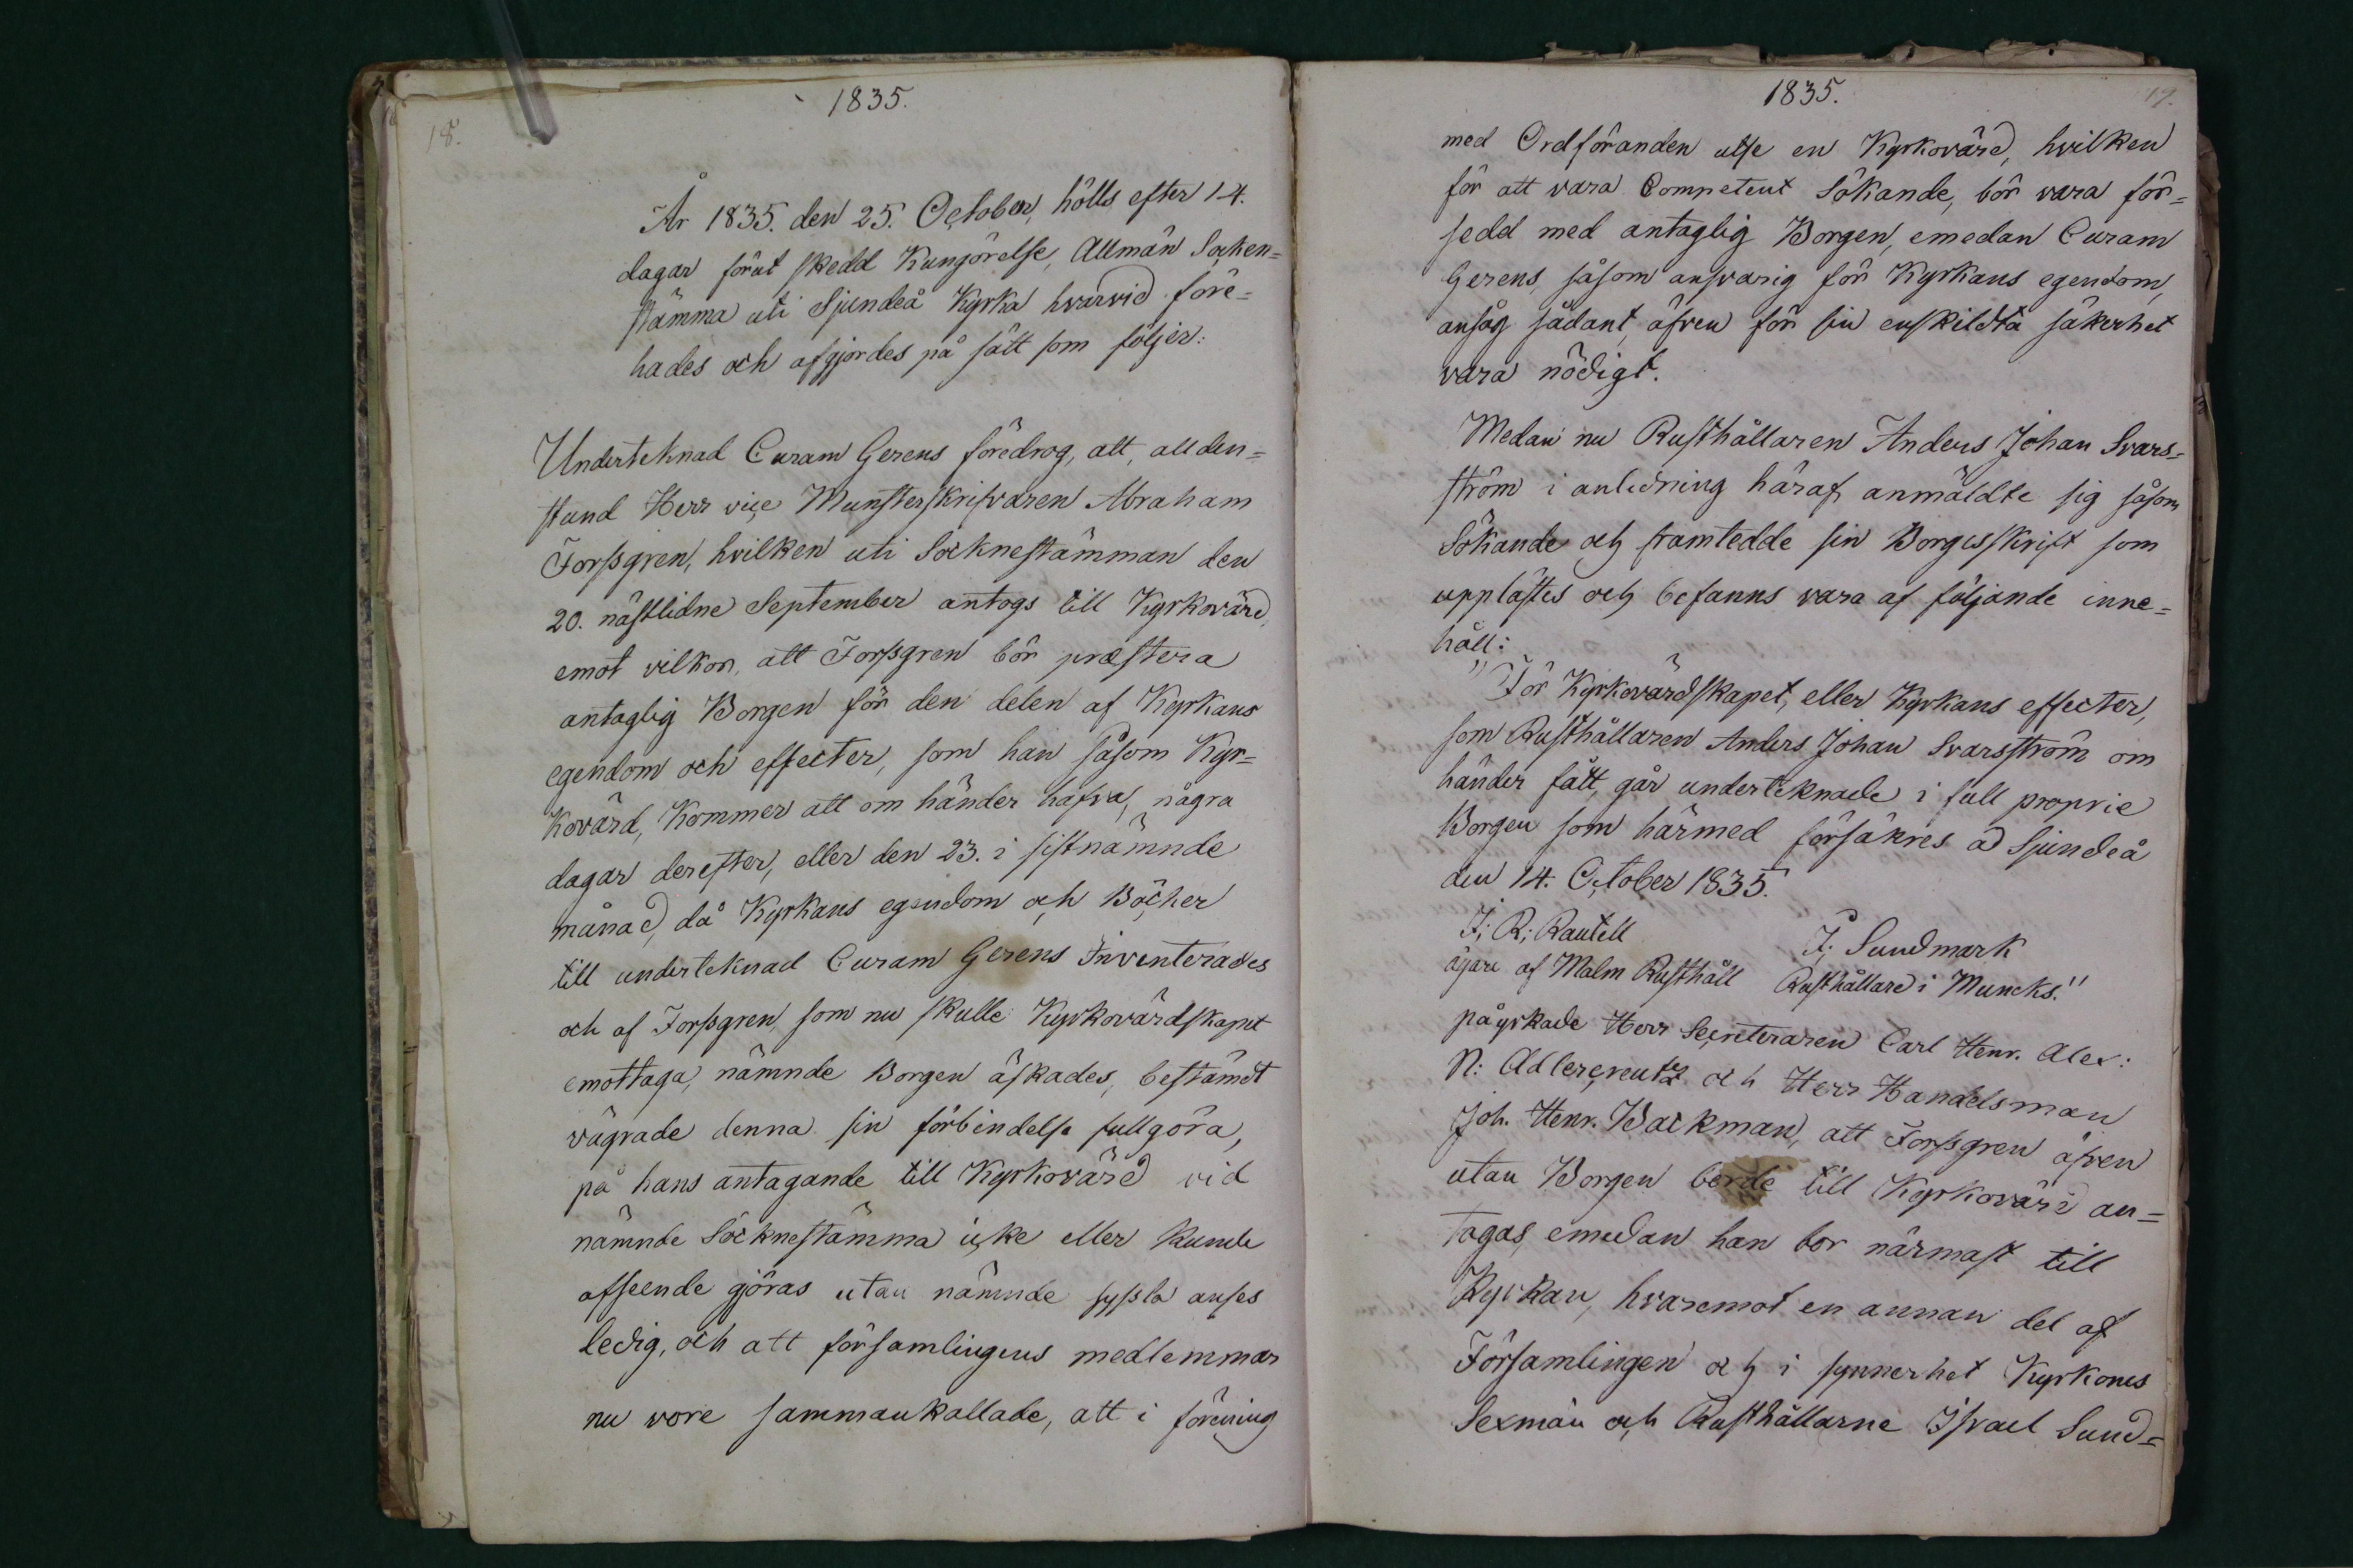 1835.
18.
År 1835. den 25. October, hölls efter 14.
dagar förut skedd Kungörelse, Allmän Socken=
stämma uti Sjundeå Kyrka hvarvid före=
hades och afgjordes på sätt som följer:
Underteknad Curam Gerens föredrog, att, allden=
stund Herr vice Munsterskrifvaren Abraham
Forssgren, hvilken uti Socknestämman den
20. nästlidne September antogs till Kyrkovärd,
emot vilkor, att Forssgren bör præstera
antaglig Borgen för den delen af Kyrkans
egendom och effecter, som han såsom Kyr=
kovärd, kommer att om händer hafva, några
dagar derefter, eller den 23. i sistnämnde
månad, då Kyrkans egendom och Böcker
till underteknad Curam Gerens Inventerades
och af Forssgren, som nu skulle Kyrkovärdskapet
emottaga, nämnde Borgen äskades, bestämdt
vägrade denna sin förbindelse fullgöra,
på hans antagande till Kyrkovärd vid
nämnde Socknestämma icke eller kunde
afseende göras utan nämnde syssla anses
ledig, och att församlingens medlemmar
nu vore sammankallade, att i förening
1835.
19.
med Ordföranden utse en Kyrkovärd, hvilken
för att vara Competent Sökande, bör vara för=
sedd med antaglig Borgen, emedan Curam
Gerens, såsom ansvarig för Kyrkans egendom,
ansåg sådant, äfven för sin enskildta säkerhet
vara nödigt.
Medan nu Rusthållaren Anders Johan Svars=
ström i anledning häraf, anmäldte sig såsom
Sökande och framtedde sin Borgesskrift som
upplästes och befanns vara af följande inne=
håll:
"För Kyrkovärdskapet, eller Kyrkans effecter,
som Rusthållaren Anders Johan Svarsström om
händer fått, går underteknade i full proprie
Borgen som härmed försäkres ad Sjundeå
den 14. October 1835.
J; R; Rautell
J; Sundmark
ägare af Malm Rusthåll Rusthållare i Muncks."
påyrkade Herr Secreteraren Carl Henr. Alex:
N: Adlercreutz och Herr Handelsman
Joh. Henr. Backman, att Forssgren äfven
utan Borgen borde till Kyrkovärd an=
tagas, emedan han bor närmast till
Kyrkan, hvaremot en annan del af
Församlingen och i synnerhet Kyrkones
Sexmän och Rusthållarne Israel Sund=